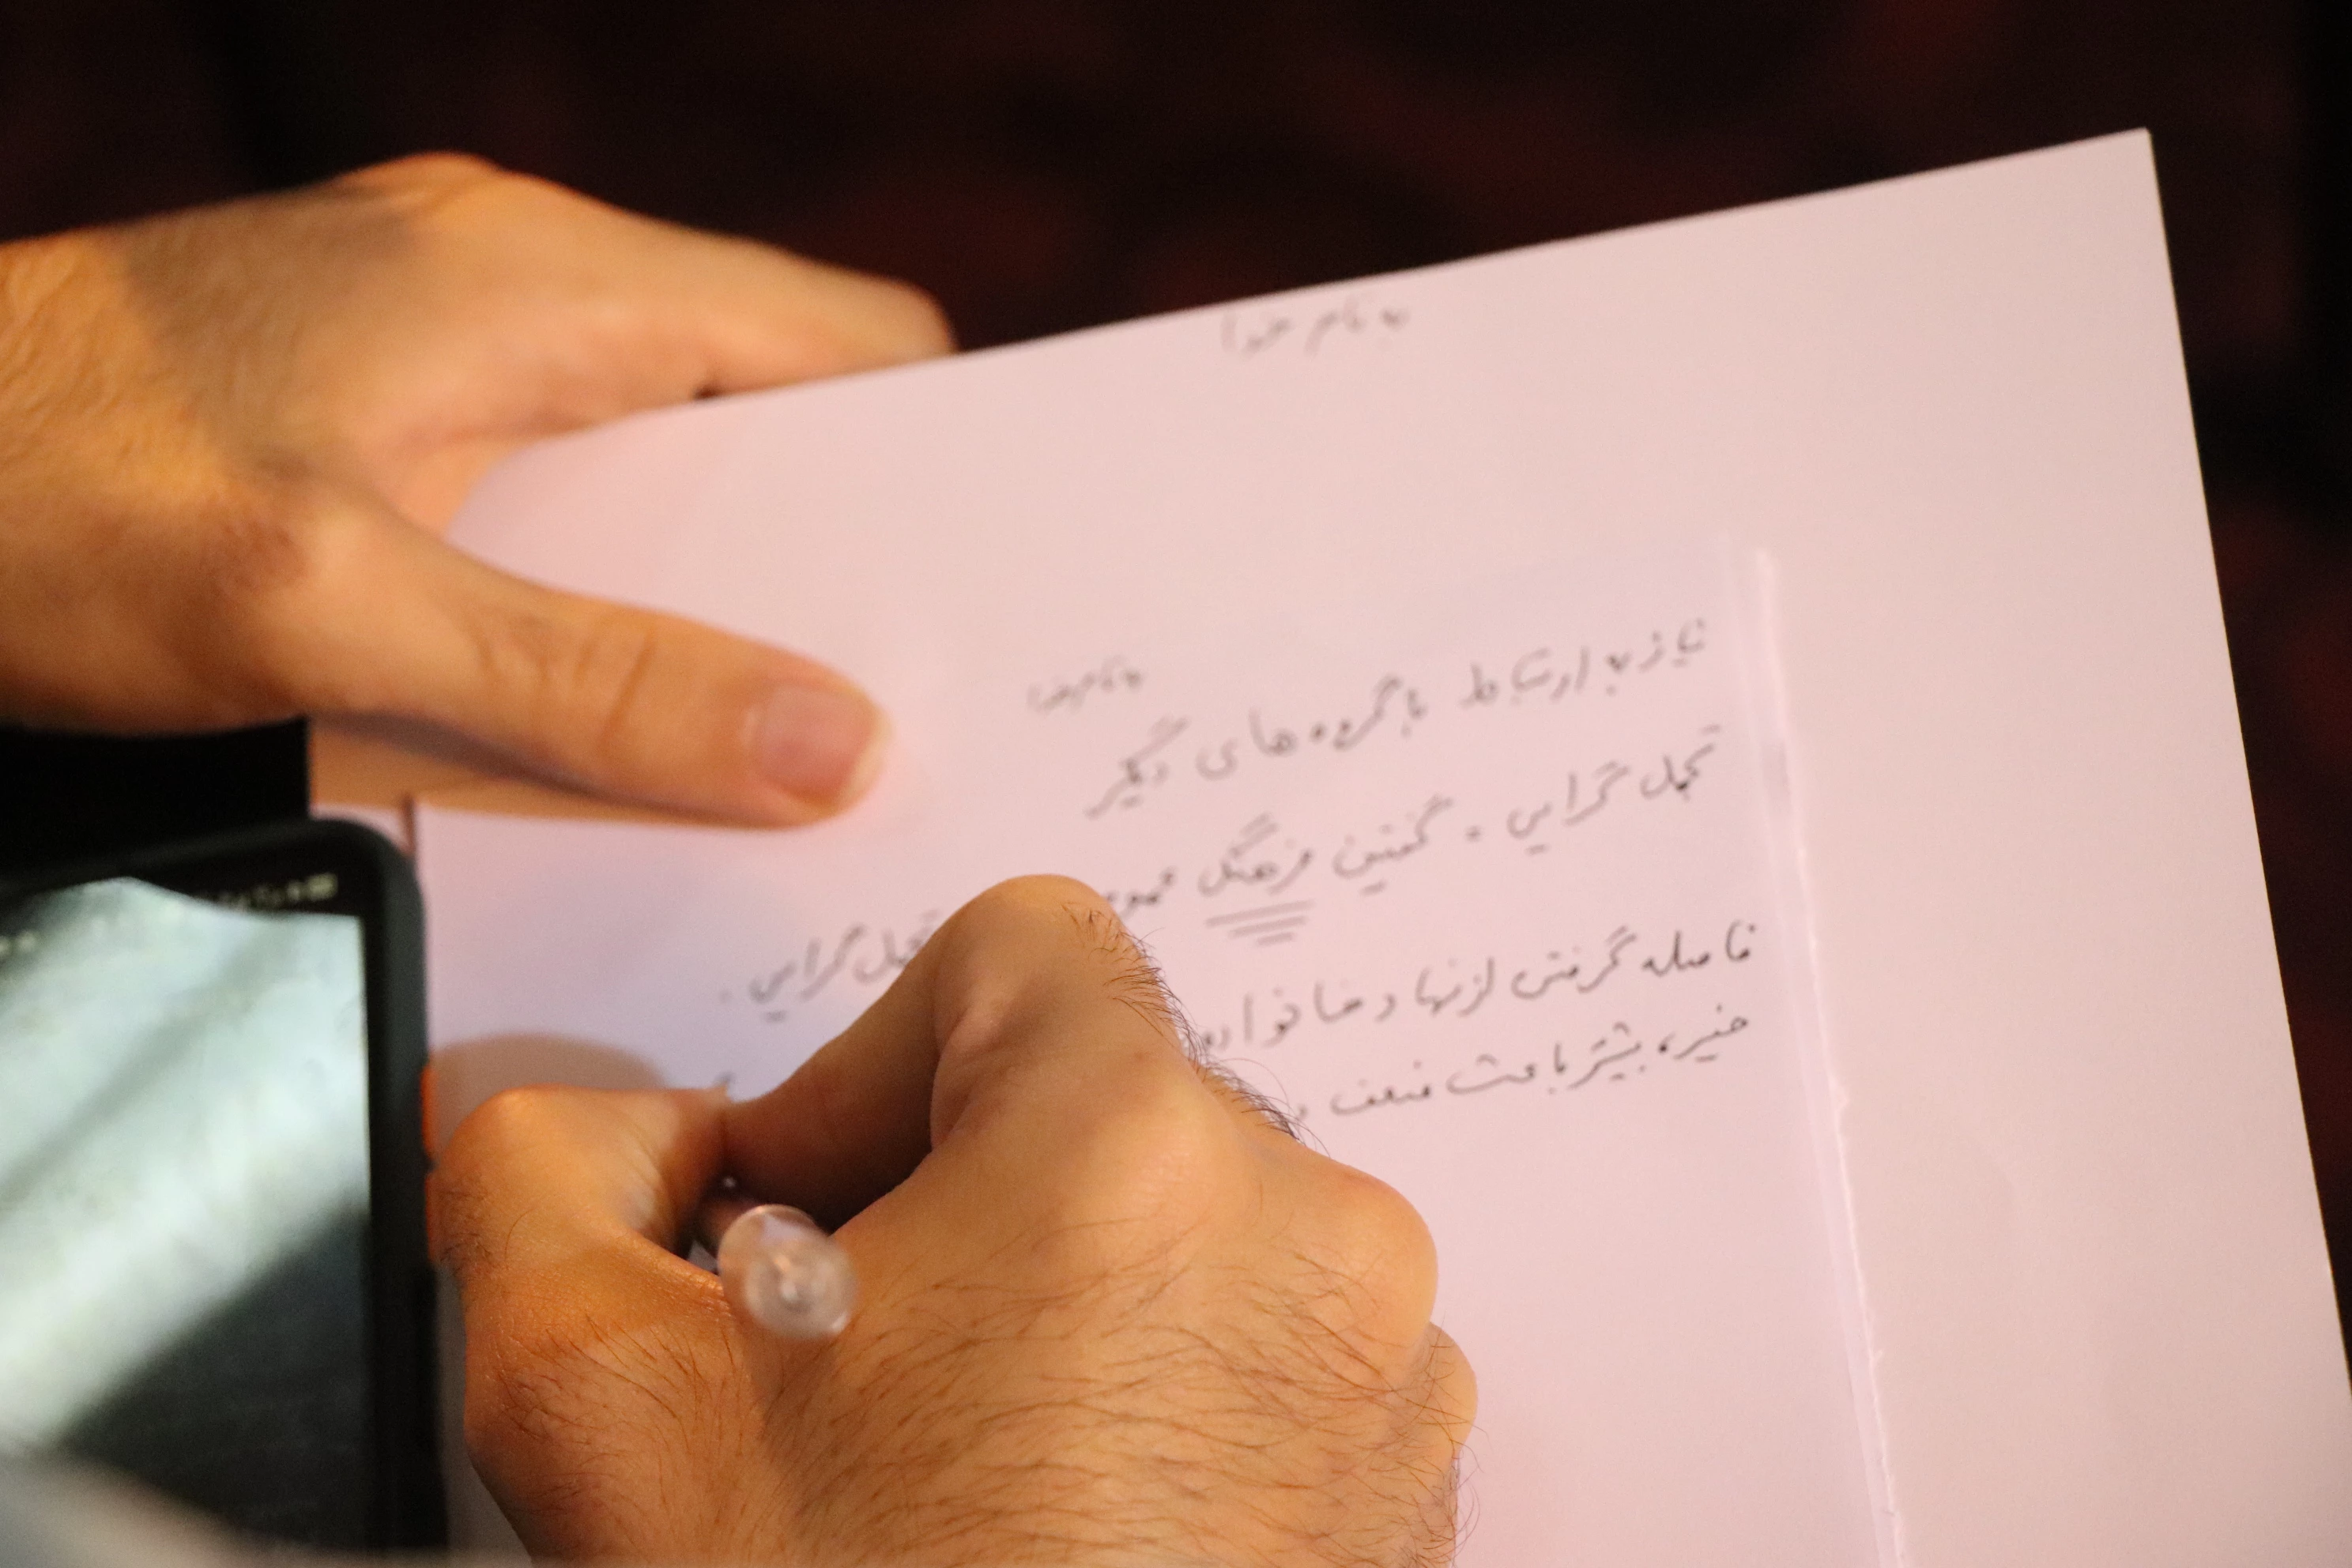 به نام خدا
به نام خدا
نیاز به ارتباط با گروه های دیگر
تجمل گرایی . گفتین فرهنگ تجمل گرایی .
فاصله گرفتن از نهاد خانواده
خیر، بیشتر باعث ضعف